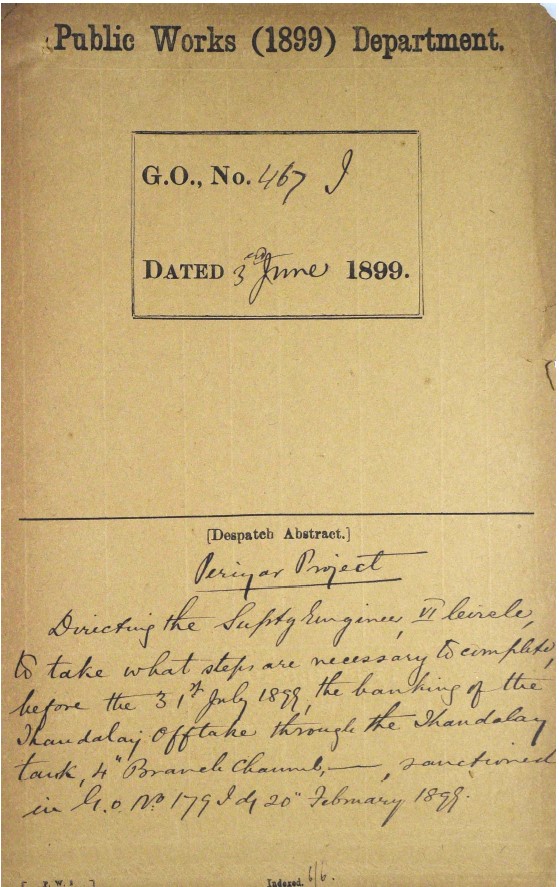 Public Works (1899) Department.
G.O., No. 467 I
DATED 3rd June 1899.
[Despatch Abstract.]
Periyar Project
Directing the Suptg Engineer, VI Circle,
to take what steps are necessary to complete,
before the 31st July 1899, the banking of the
Thandalay Offtake through the Thandalay
tank, 4th Branch Channel, —, sanctioned
in G.O. No 179 I d/ 20th February 1899.
Indexed. 6/6.